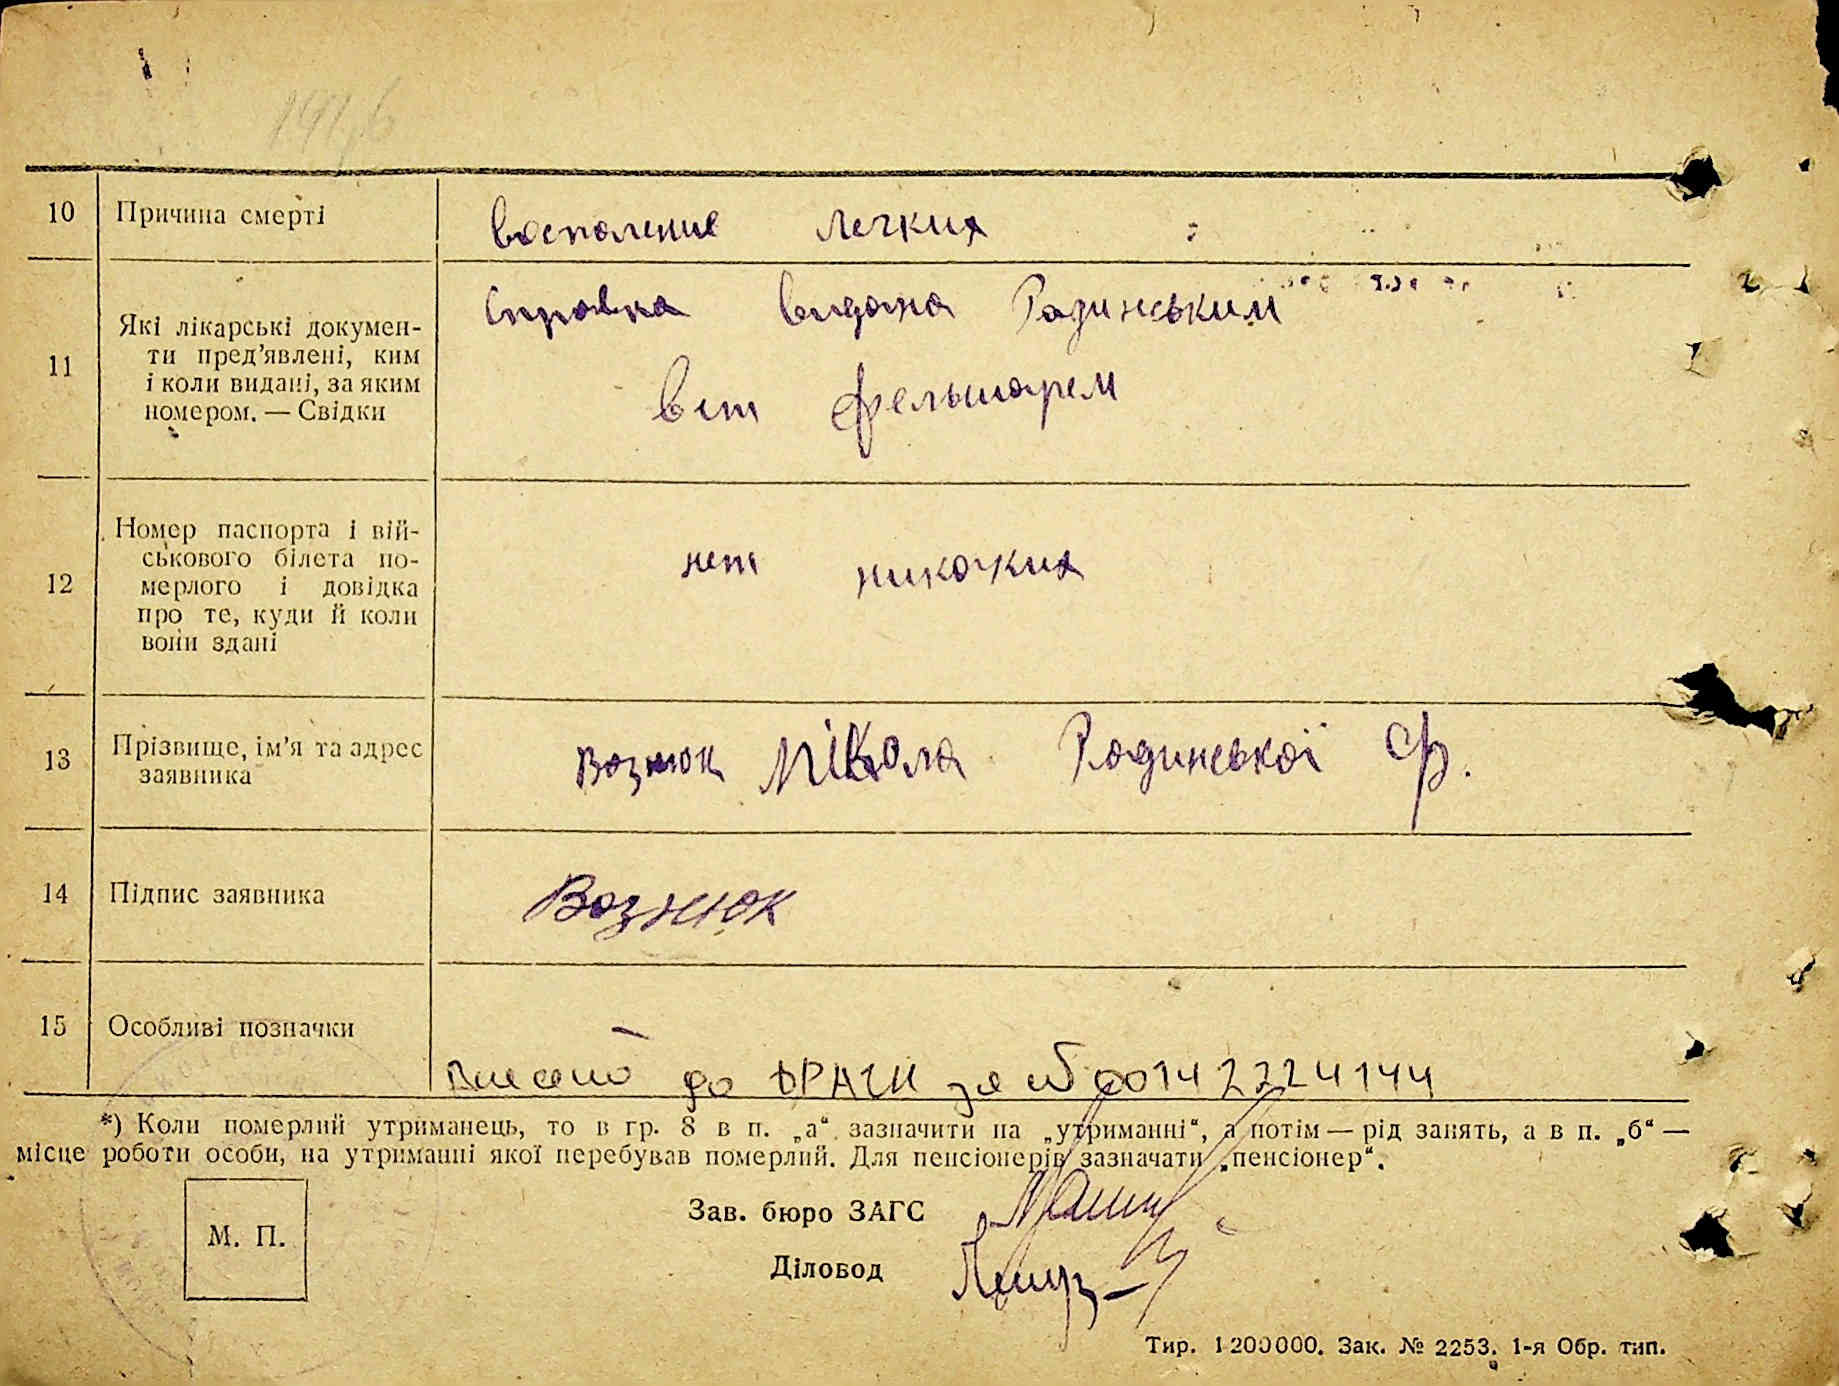 10 Причина смерті воспаление легких
11 Які лікарські докумен-
ти пред’явлені, ким
і коли видані, за яким
номером. — Свідки
Справка видана Радинським
вет фельшарем
12 Номер паспорта і вій-
ськового білета по-
мерлого і довідка
про те, куди й коли
вони здані
нет никаких
13 Прізвище, ім’я та адрес
заявника
Вознюк Мікола Радинської ф.
14 Підпис заявника Вознюк
15 Особливі позначки
Внесено до ДРАЦС за № 00142224144
*) Коли померлий утриманець, то в гр. 8 в п. „а“ зазначити на „утриманні“, а потім — рід занять, а в п. „б“ —
місце роботи особи, на утриманні якої перебував померлий. Для пенсіонерів зазначати „пенсіонер“.
Зав. бюро ЗАГС
М. П.
Діловод
Тир. 1 200 000. Зак. № 2253. 1-я Обр. тип.